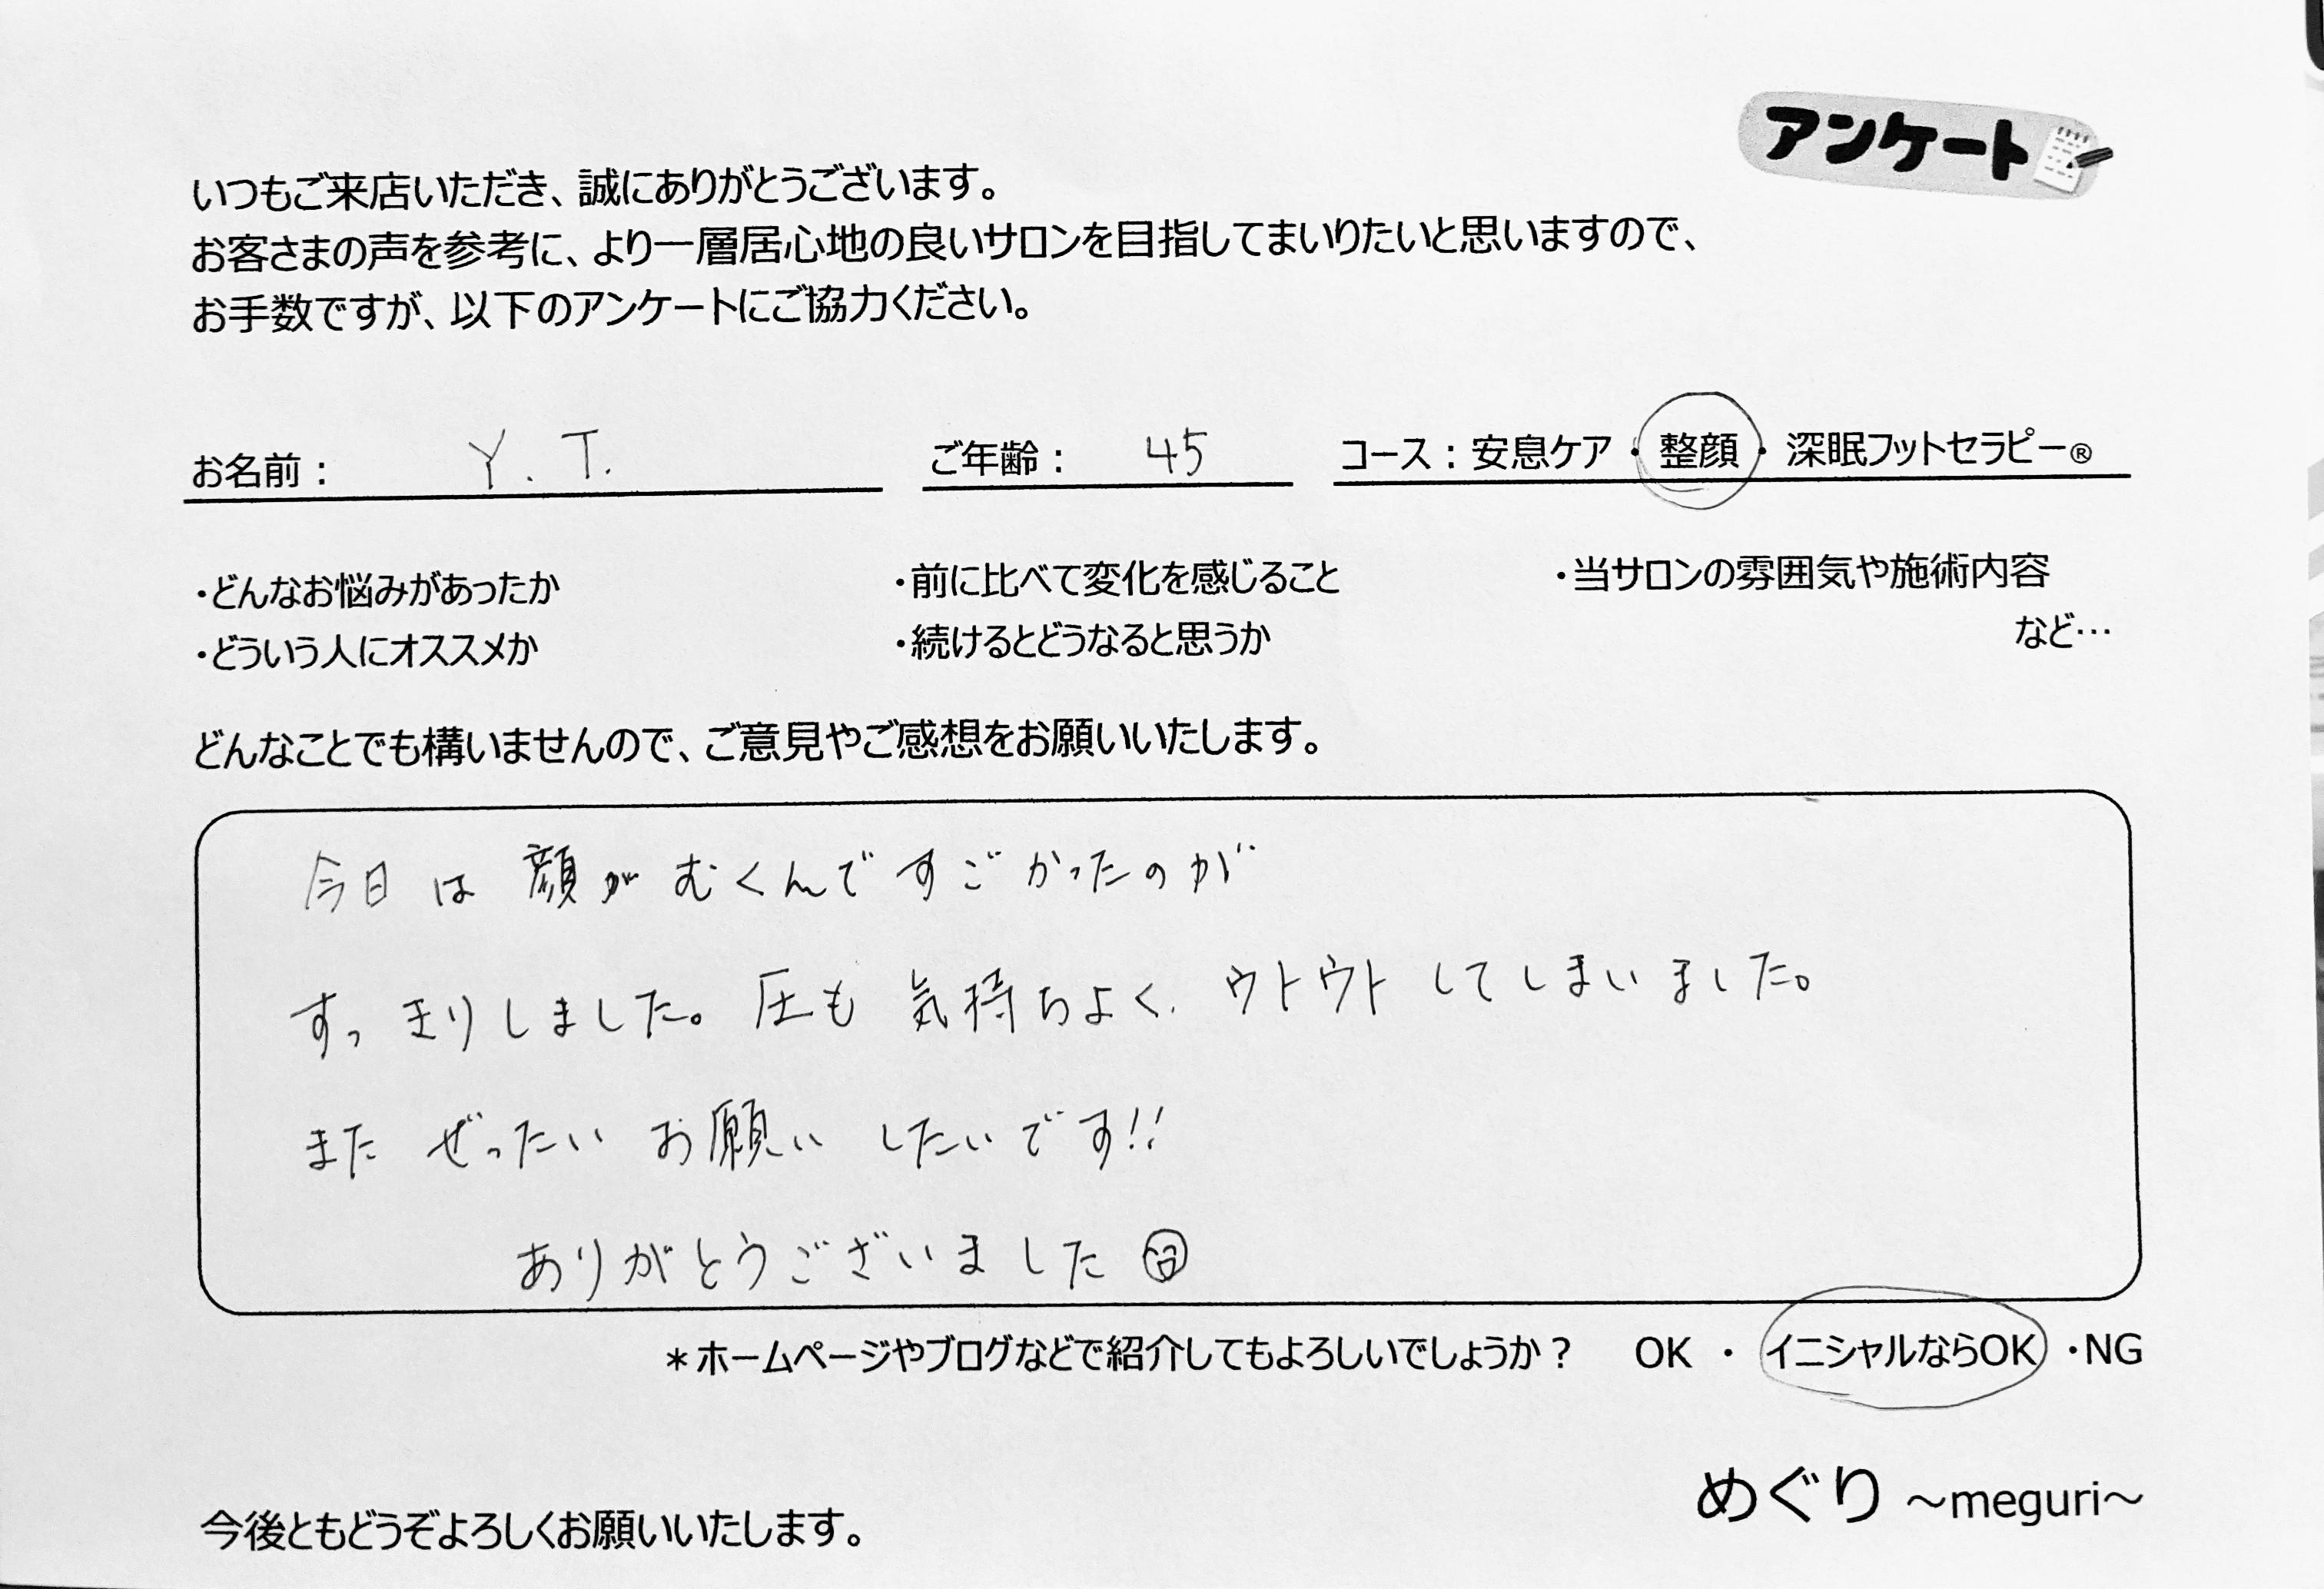 アンケート
いつもご来店いただき、誠にありがとうございます。
お客さまの声を参考に、より一層居心地の良いサロンを目指してまいりたいと思いますので、
お手数ですが、以下のアンケートにご協力ください。
お名前： Y. T. ご年齢： 45 コース：安息ケア・整顔・深眠フットセラピー®
・どんなお悩みがあったか ・前に比べて変化を感じること ・当サロンの雰囲気や施術内容
・どういう人にオススメか ・続けるとどうなると思うか など…
どんなことでも構いませんので、ご意見やご感想をお願いいたします。
今日は顔がむくんですごかったのが
すっきりしました。圧も気持ちよく、ウトウトしてしまいました。
またぜったいお願いしたいです!!
ありがとうございました
＊ホームページやブログなどで紹介してもよろしいでしょうか？ OK ・ イニシャルならOK ・NG
めぐり ～meguri～
今後ともどうぞよろしくお願いいたします。